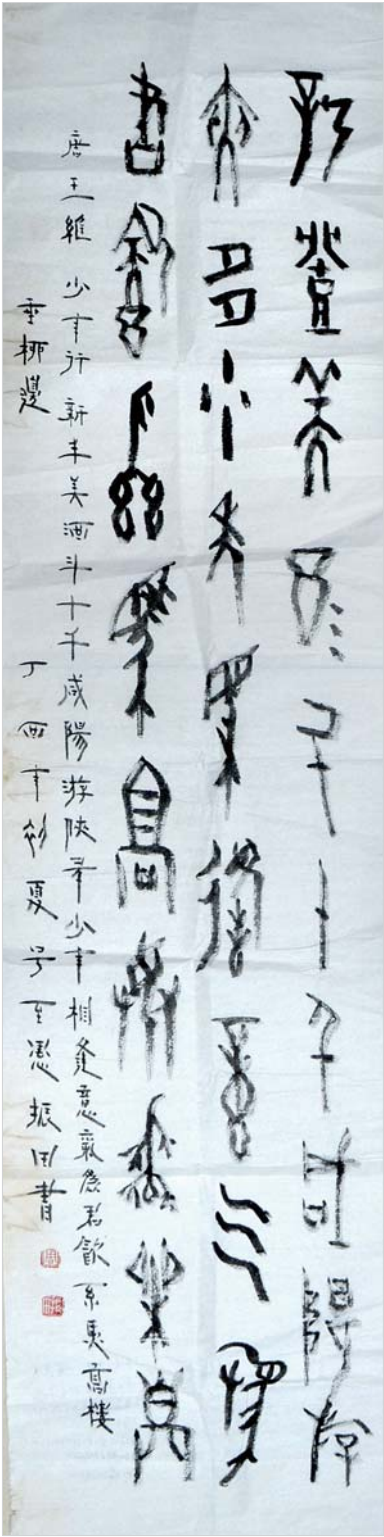 新豐美酒斗十千咸陽游
俠多少年相逢意气為
君飲系馬高樓垂柳邊
唐王維 少年行 新丰美酒斗十千咸陽游俠多少年相逢意氣為君飲系馬高樓
垂柳邊 丁酉年初夏 振田書